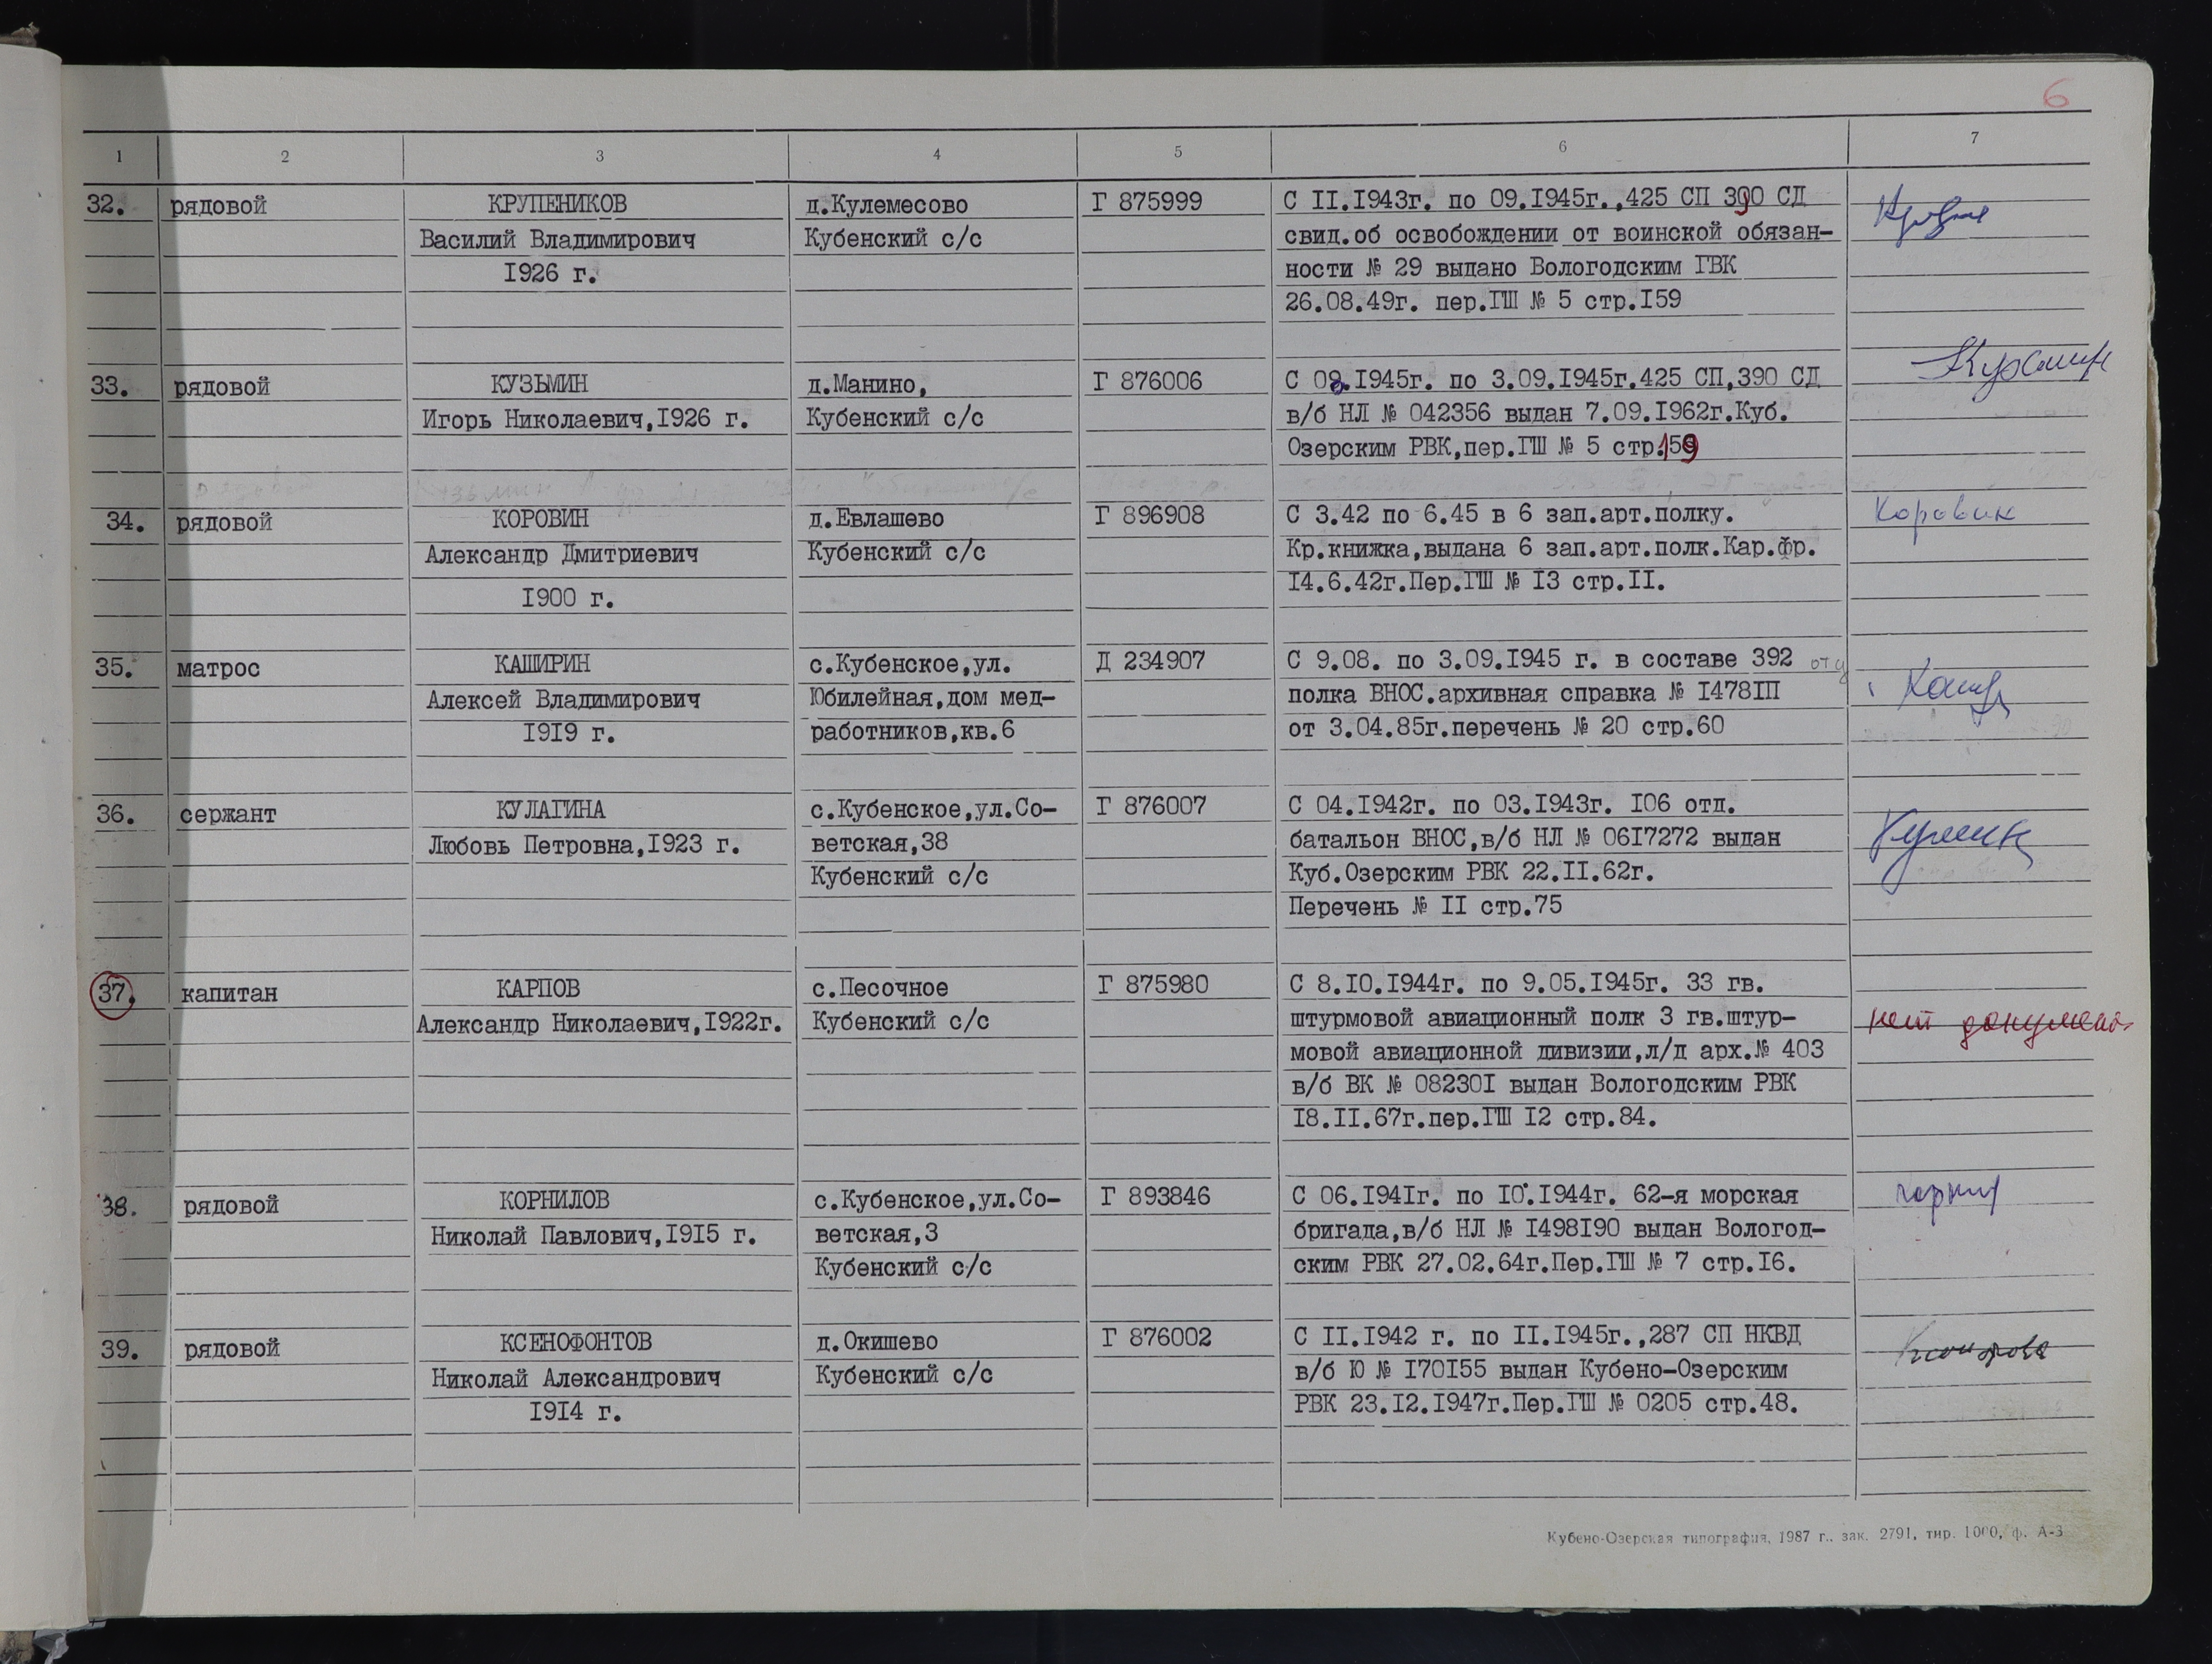 6
1 2 3 4 5 6 7
32. рядовой КРУПЕНИКОВ д.Кулемесово Г 875999 С II.I943г. по 09.I945г.,425 СП 390 СД
Василий Владимирович Кубенский с/с свид.об освобождении от воинской обязан-
I926 г. ности № 29 выдано Вологодским ГВК
26.08.49г. пер.ГШ № 5 стр.I59
33. рядовой КУЗЬМИН д.Манино, Г 876006 С 08.I945г. по 3.09.I945г.425 СП,390 СД Кузьмин
Игорь Николаевич,I926 г. Кубенский с/с в/б НЛ № 042356 выдан 7.09.I962г.Куб.
Озерским РВК,пер.ГШ № 5 стр.159
34. рядовой КОРОВИН д.Евлашево Г 896908 С 3.42 по 6.45 в 6 зап.арт.полку. Коровин
Александр Дмитриевич Кубенский с/с Кр.книжка,выдана 6 зап.арт.полк.Кар.фр.
I900 г. I4.6.42г.Пер.ГШ № I3 стр.II.
35. матрос КАШИРИН с.Кубенское,ул. Д 234907 С 9.08. по 3.09.I945 г. в составе 392
Алексей Владимирович Юбилейная,дом мед- полка ВНОС.архивная справка № I478IП
I9I9 г. работников,кв.6 от 3.04.85г.перечень № 20 стр.60
36. сержант КУЛАГИНА с.Кубенское,ул.Со- Г 876007 С 04.I942г. по 03.I943г. I06 отд.
Любовь Петровна,I923 г. ветская,38 батальон ВНОС,в/б НЛ № 06I7272 выдан
Кубенский с/с Куб.Озерским РВК 22.II.62г.
Перечень № II стр.75
37. капитан КАРПОВ с.Песочное Г 875980 С 8.I0.I944г. по 9.05.I945г. 33 гв.
Александр Николаевич,I922г. Кубенский с/с штурмовой авиационный полк 3 гв.штур- нет документ
мовой авиационной дивизии,л/д арх.№ 403
в/б ВК № 08230I выдан Вологодским РВК
I8.II.67г.пер.ГШ I2 стр.84.
38. рядовой КОРНИЛОВ с.Кубенское,ул.Со- Г 893846 С 06.I94Iг. по I0.I944г. 62-я морская
Николай Павлович,I9I5 г. ветская,3 бригада,в/б НЛ № I498I90 выдан Вологод-
Кубенский с/с ским РВК 27.02.64г.Пер.ГШ № 7 стр.I6.
39. рядовой КСЕНОФОНТОВ д.Окишево Г 876002 С II.I942 г. по II.I945г.,287 СП НКВД
Николай Александрович Кубенский с/с в/б Ю № I70I55 выдан Кубено-Озерским
I9I4 г. РВК 23.I2.I947г.Пер.ГШ № 0205 стр.48.
Кубено-Озерская типография, 1987 г., зак. 2791, тир. 1000, ф. А-3